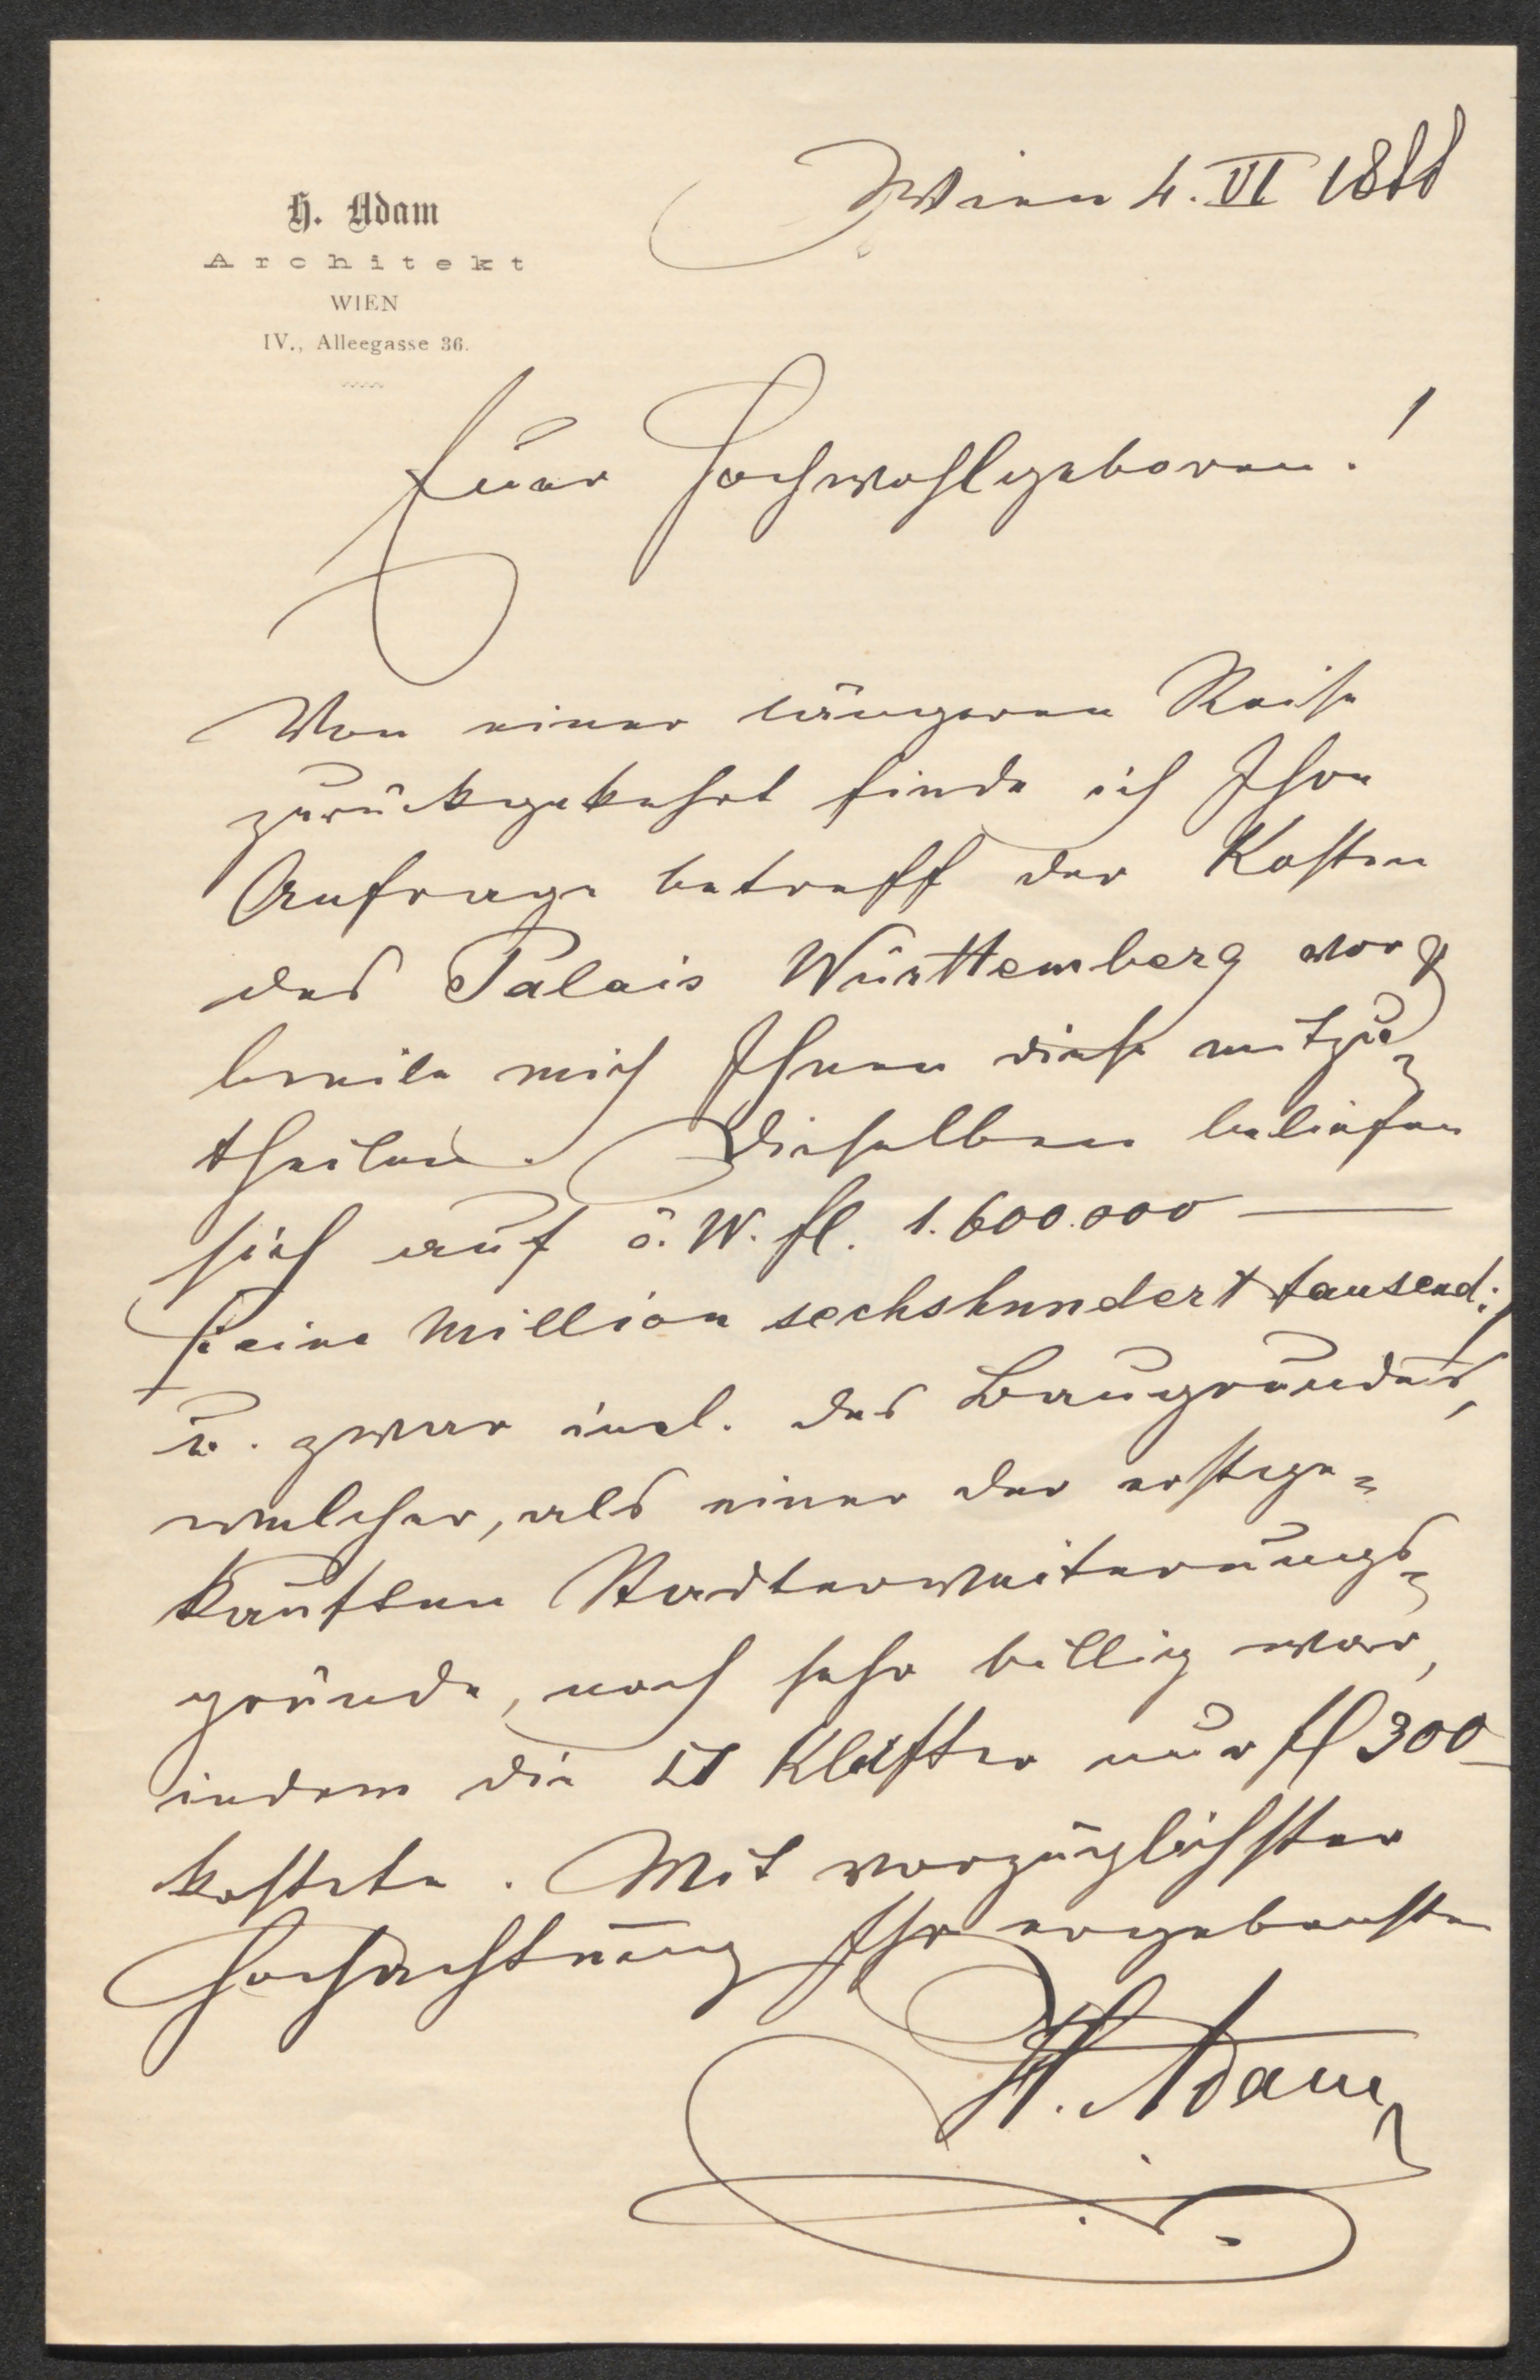 Wien 4. VI 1888
H. Adam
Architekt
WIEN
IV., Alleegasse 36.
Euer Hochwohlgeboren!
Von einer längeren Reise
zurückgekehrt finde ich Ihre
Anfrage betreff der Kosten
des Palais Württemberg vor &
beeile mich Ihnen diese mitzu-
theilen. Dieselben beliefen
sich auf ö. W. fl. 1.600.000 —
/: eine Million sechshundert tausend :/
u. zwar incl. des Baugrundes,
welcher, als einer der erstge-
kauften Stadterweiterungs-
gründe, noch sehr billig war,
indem die □ Klafter nur fl 300 –
kostete. Mit vorzüglichster
Hochachtung Ihr ergebenster
H. Adam